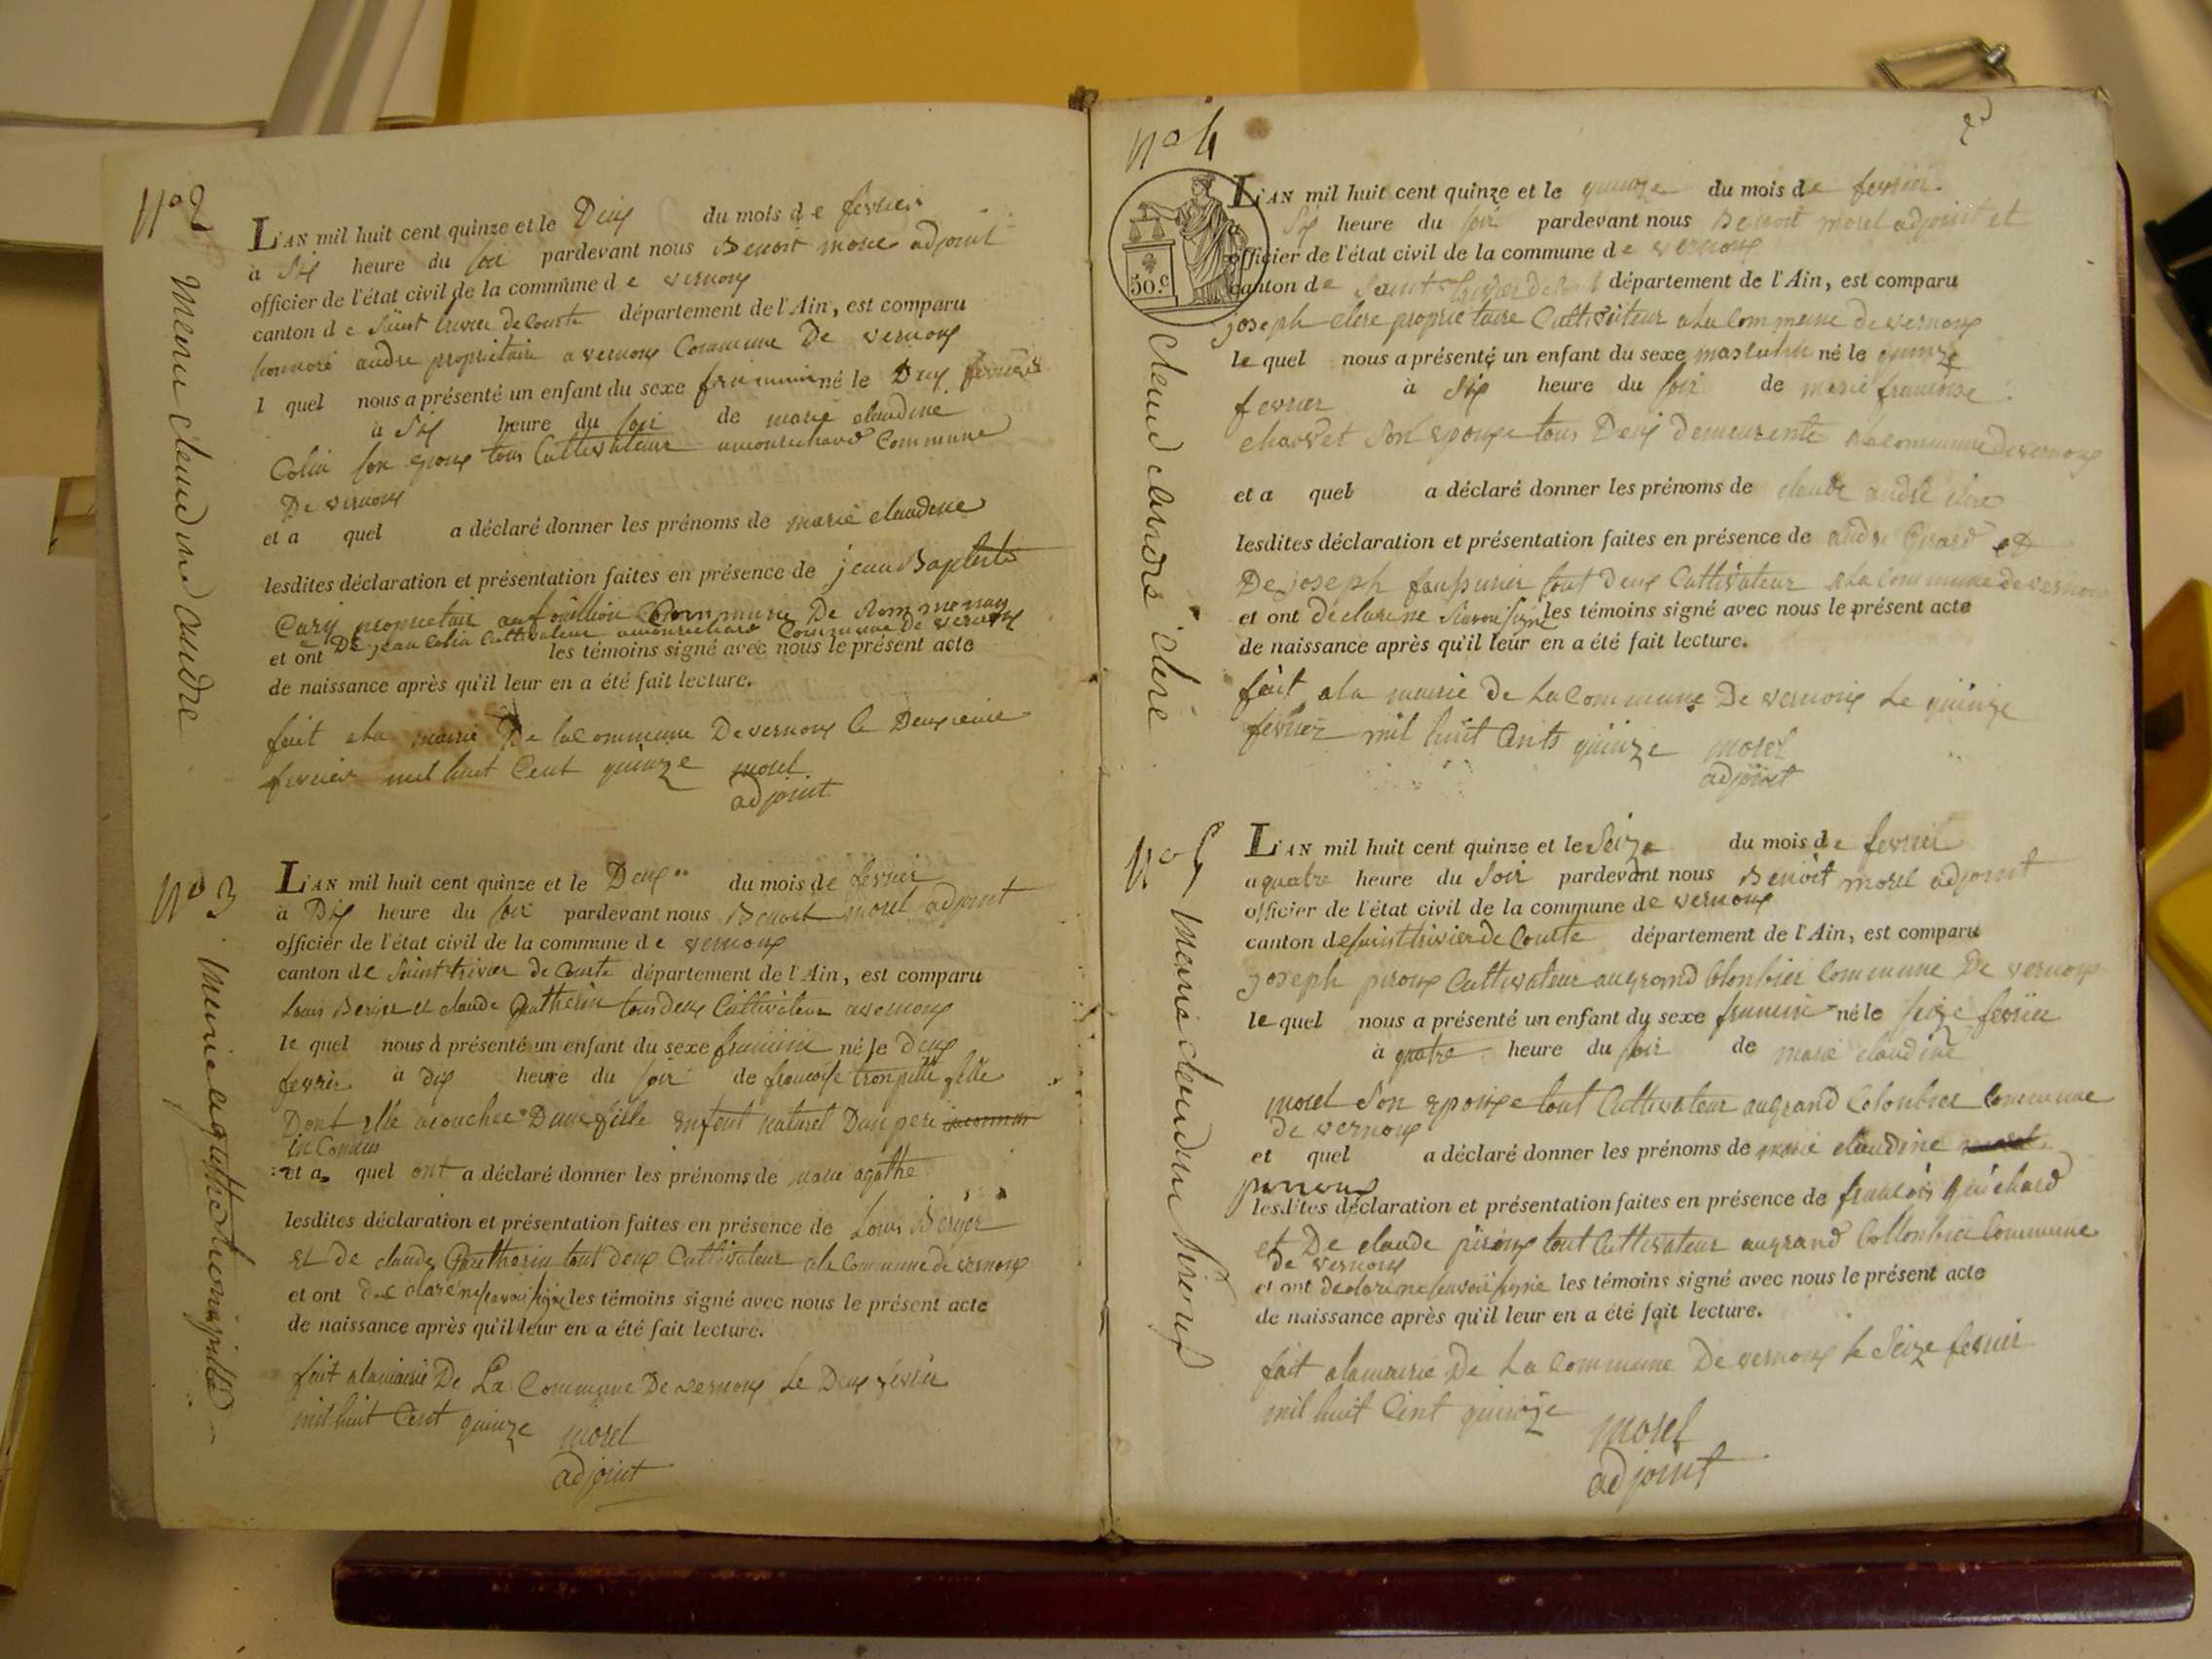 N° 2
Marie claudine andre
L'AN mil huit cent quinze et le Deux du mois de fevrier
à Six heure du soir pardevant nous Benoit morel adjoint
officier de l'état civil de la commune de vernoux
canton de Saint trivier de Courte département de l'Ain, est comparu
honnoré andre proprietaire a vernoux Commune De vernoux
l quel nous a présenté un enfant du sexe feminin né le Deux fevrier
à Six heure du soir de marie claudine
Colin son epoux tous Cultivateur Commune
De vernoux
et a quel a déclaré donner les prénoms de marie claudine
lesdites déclaration et présentation faites en présence de jean Baptiste
Cary proprietair Commune De Rommenay
De jean Colin Cultivateur Commune de vernoux
et ont les témoins signé avec nous le présent acte
de naissance après qu'il leur en a été fait lecture.
fait ala mairie De la Commune De vernoux le Deuxieme
fevrier mil huit Cent quinze morel
adjoint
N° 3
marie agathe
L'AN mil huit cent quinze et le Deux du mois de fevrier
à Dix heure du soir pardevant nous Benoit morel adjoint
officier de l'état civil de la commune de vernoux
canton de Saint trivier de Courte département de l'Ain, est comparu
Louis Berger et claude Gautherin tous deux Cultivateur a vernoux
le quel nous à présenté un enfant du sexe feminin né le deux
fevrier à dix heure du soir de francoise fille
Dont elle acouchee D'une fille enfent naturel D'un pere inconnu
in Connus
et a quel ont a déclaré donner les prénoms de marie agathe
lesdites déclaration et présentation faites en présence de Louis Berger
et De claude Gautherin tout deux Cultivateur ala Commune de vernoux
et ont declaré ne savoir signé les témoins signé avec nous le présent acte
de naissance après qu'il leur en a été fait lecture.
fait ala mairie De La Commune De vernoux Le Deux fevrier
mil huit Cent quinze morel
adjoint
2
N° 4
claud andré clere
50.c
L'AN mil huit cent quinze et le quinze du mois de fevrier
a Six heure du soir pardevant nous Benoit morel adjoint et
officier de l'état civil de la commune de vernoux
canton de Saint trivier de département de l'Ain, est comparu
joseph clere proprietaire Cultivateur ala Commune de vernoux
le quel nous a présenté un enfant du sexe masculin né le quinze
fevrier à Six heure du soir de marie francoise
chavvet Son epouse tous Deux demeurente ala commune de vernoux
et a quel a déclaré donner les prénoms de claude andré clere
lesdites déclaration et présentation faites en présence de andre et
De joseph tout deux Cultivateur ala Commune de vernoux
et ont déclare ne Savoir signé les témoins signé avec nous le présent acte
de naissance après qu'il leur en a été fait lecture.
fait ala mairie De La Commune De vernoux Le quinze
fevrier mil huit Cents quinze morel
adjoint
N° 5
Marie claudine piroux
L'AN mil huit cent quinze et le Seize du mois de fevrier
a quatre heure du Soir pardevant nous Benoit morel adjoint
officier de l'état civil de la commune de vernoux
canton de saint trivier de Courte département de l'Ain, est comparu
joseph piroux Cultivateur au grand Colonbier Commune De vernoux
le quel nous a présenté un enfant du sexe feminin né le seize fevrier
à quatre heure du soir de marie claudine
morel Son epouse tout Cultivateur au grand Colonbier Commune
de vernoux
et quel a déclaré donner les prénoms de marie claudine morel
pirroux
lesdites déclaration et présentation faites en présence de francois guichard
et De claude piroux tout Cultivateur au grand Collonbier Commune
De vernoux
et ont declare ne savoir signé les témoins signé avec nous le présent acte
de naissance après qu'il leur en a été fait lecture.
fait ala mairie De La Commune De vernoux le Seize fevrier
mil huit Cent quinze morel
adjoint